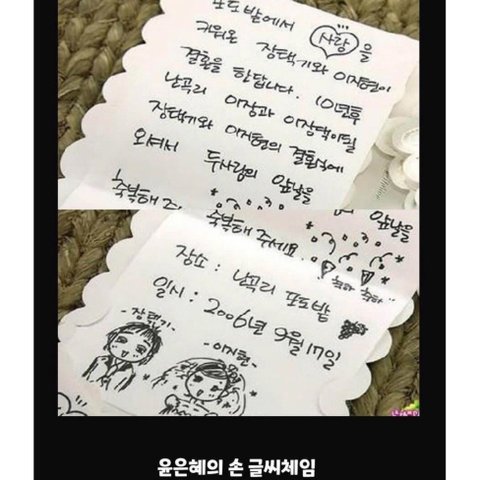 포도밭에서 사랑을
키워온 장택기와 이지현이
결혼을 한답니다. 10년후
난곡리 이장과 이장댁이될
장택기와 이지현의 결혼식에
오셔서 두사람의 앞날을
축복해 주
앞날을
축복해 주세요.
축하 축하
장소 : 난곡리 포도밭
일시 : 2006년 9월 17일
-장택기-
-이지현-
윤은혜의 손 글씨체임